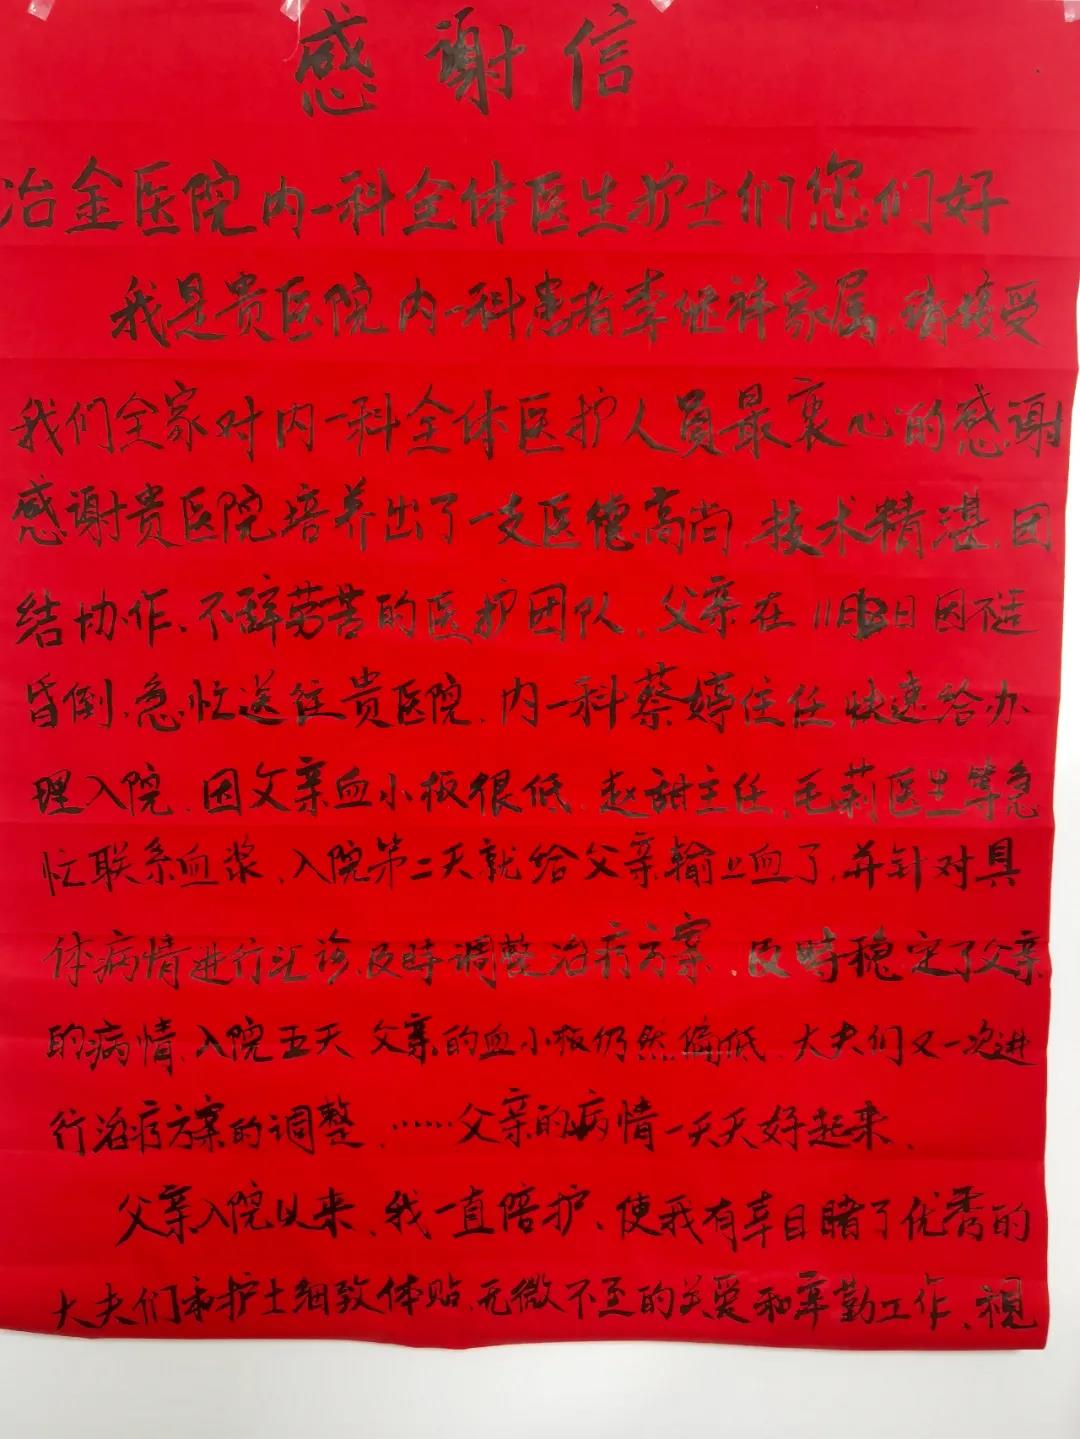 感谢信
冶金医院内一科全体医生护士们您们好
我是贵医院内一科患者李继祥家属、请接受
我们全家对内一科全体医护人員最衷心的感谢
感谢贵医院培养出了一支医德高尚、技术精湛、团
结协作、不辞劳苦的医护团队、父亲在11月日因不适
昏倒、急忙送往贵医院、内一科蔡婷住任快速给办
理入院、因父亲血小板很低、赵甜主任、毛莉医生等急
忙联系血浆、入院第二天就给父亲输上血了、并针对具
体病情进行汇诊、及時调整治疗方案、及時稳定了父亲
的病情、入院五天父亲的血小板仍然偏低、大夫们又一次进
行治疗方案的调整、……父亲的病情一天天好起来、
父亲入院以来、我一直陪护、使我有幸目睹了优秀的
大夫们和护士细致体贴、无微不至的关爱和辛勤工作、視